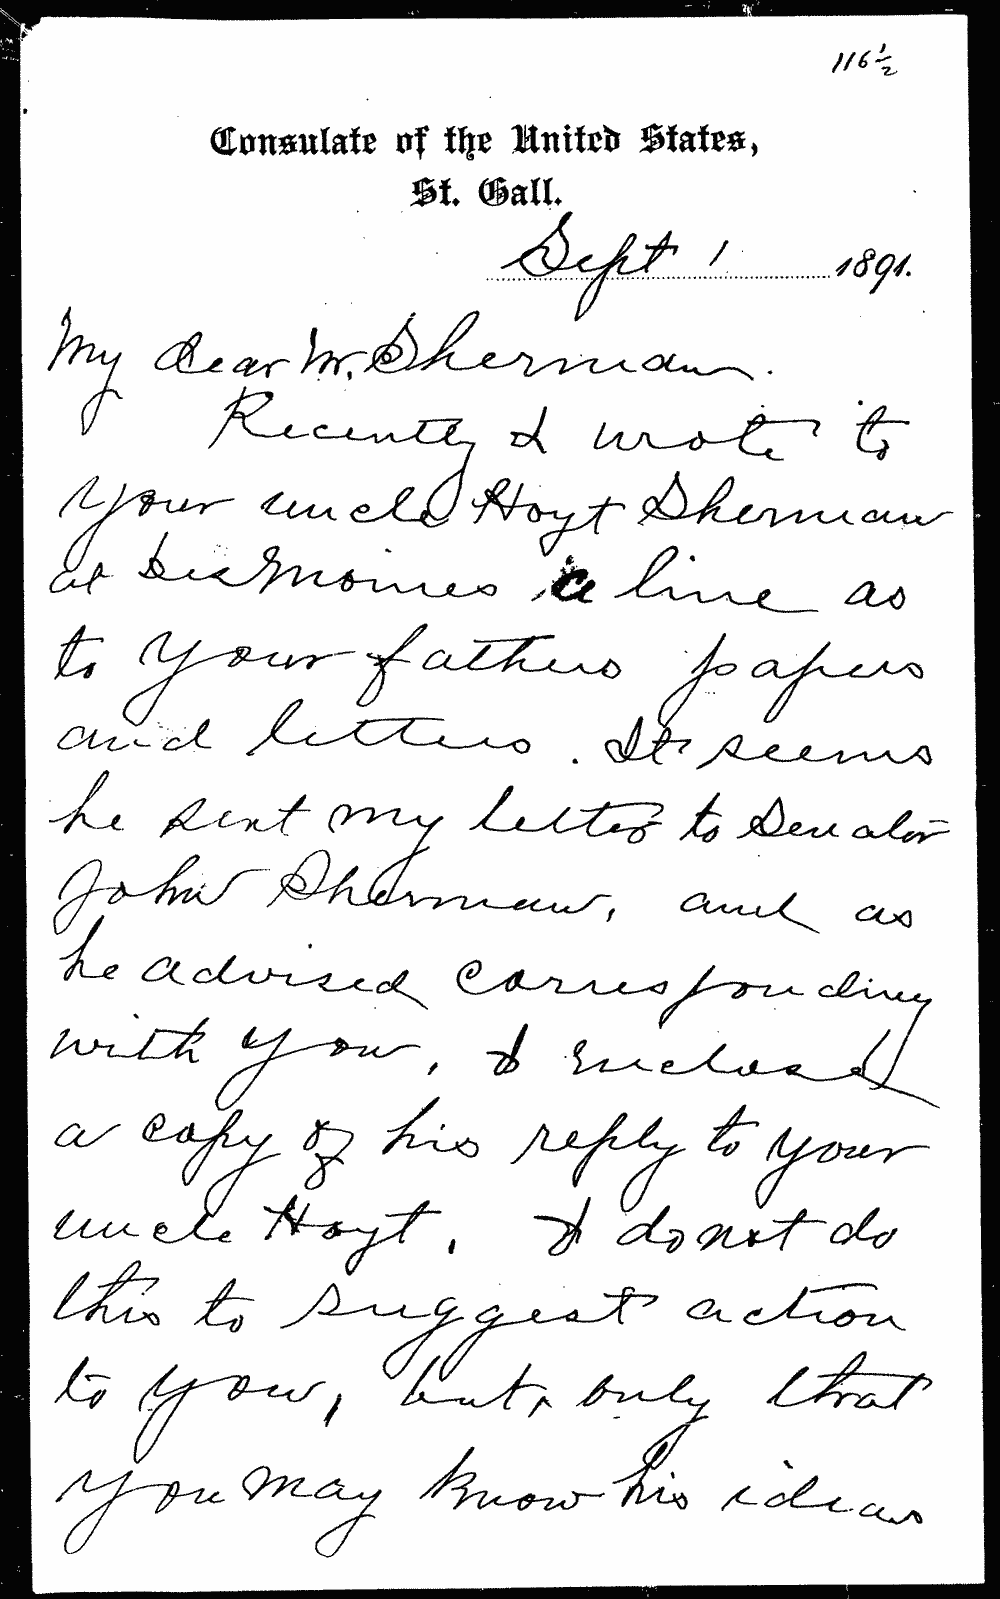 116½
Consulate of the United States,
St. Gall.
Sept 1 1891.
My dear Mr. Sherman.
Recently I wrote to
your uncle Hoyt Sherman
at Des Moines a line as
to your fathers papers
and letters. It seems
he sent my letter to Senator
John Sherman, and as
he advised corresponding
with you, I enclose
a copy of his reply to your
uncle Hoyt. I do not do
this to suggest action
to you, but, only that
you may know his ideas